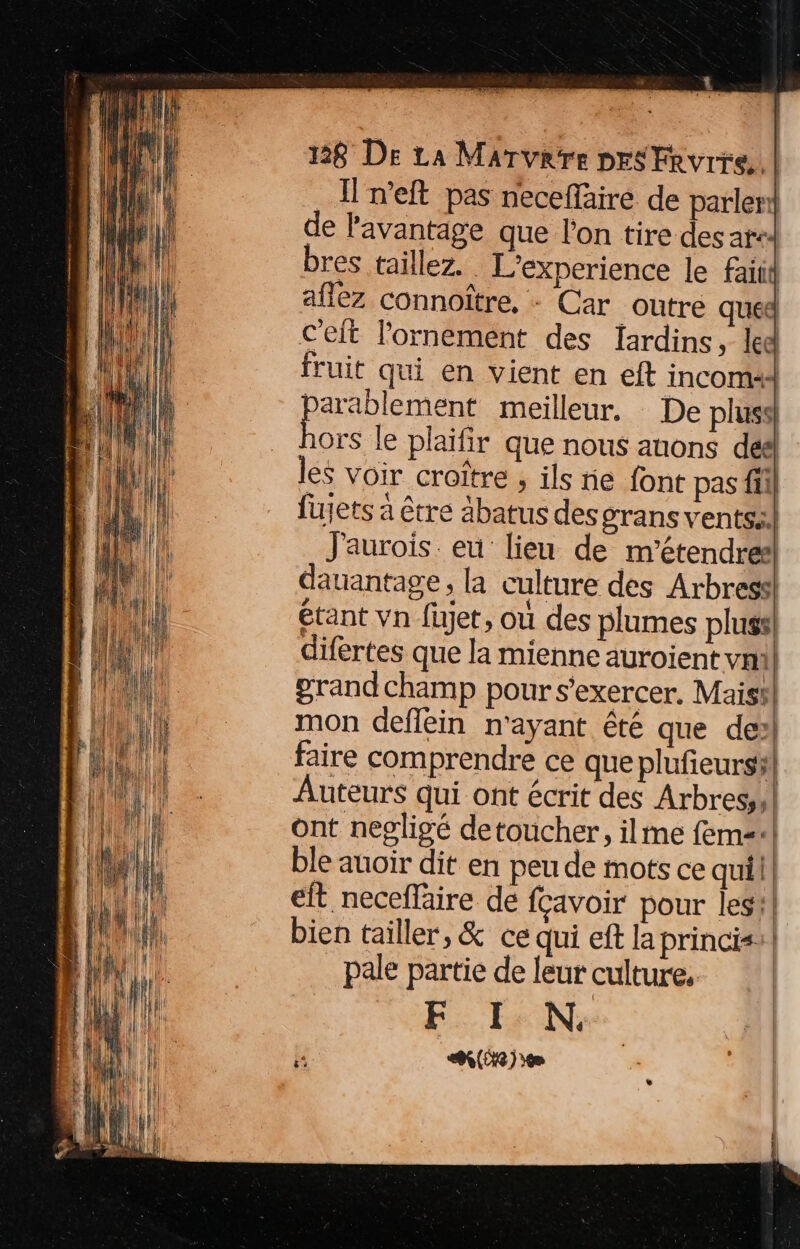 128 DE LA MATVRTE DES FRVITS,
Il n'eſt pas neceſſaire de parler
de l'avantage que l'on tire des ar-
bres taillez. L'experience le fait
aſſez connoître. Car outre que
c'eſt l'ornement des Iardins, le
fruit qui en vient en eſt incom-
parablement meilleur. De plus
hors le plaiſir que nous auons de
les voir croître, ils ne ſont pas ſi
ſujets à être abatus des grans vents.
J'aurois eu lieu de m'étendre
dauantage, la culture des Arbres
étant vn ſujet, où des plumes plus
diſertes que la mienne auroient vn
grand champ pour s'exercer. Mais
mon deſſein n'ayant êté que de
faire comprendre ce que pluſieurs
Auteurs qui ont écrit des Arbres,
ont negligé de toucher, il me ſem-
ble auoir dit en peu de mots ce qui
eſt neceſſaire de ſçavoir pour les
bien tailler, & ce qui eſt la princi-
pale partie de leur culture.
F I N.